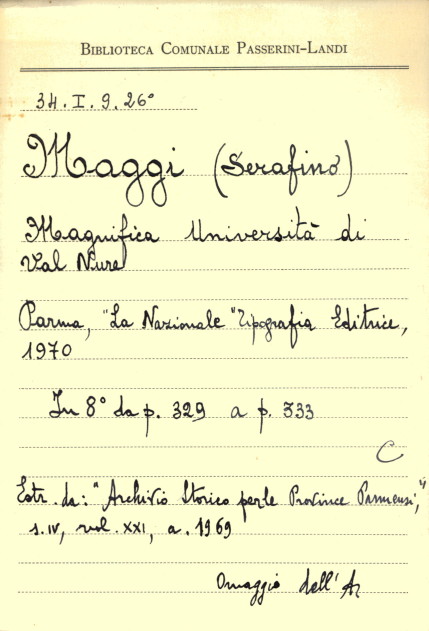 BIBLIOTECA COMUNALE PASSERINI-LANDI
34.I.9.26°
Maggi (Serafino)
Magnifica Università di
Val Nure
Parma, "La Nazionale" Tipografia Editrice,
1970
In 8° da p. 329 a p. 333
C
Estr. da: "Archivio Storico per le Province Parmensi",
s. IV, vol. XXI, a. 1969
Omaggio dell'A.